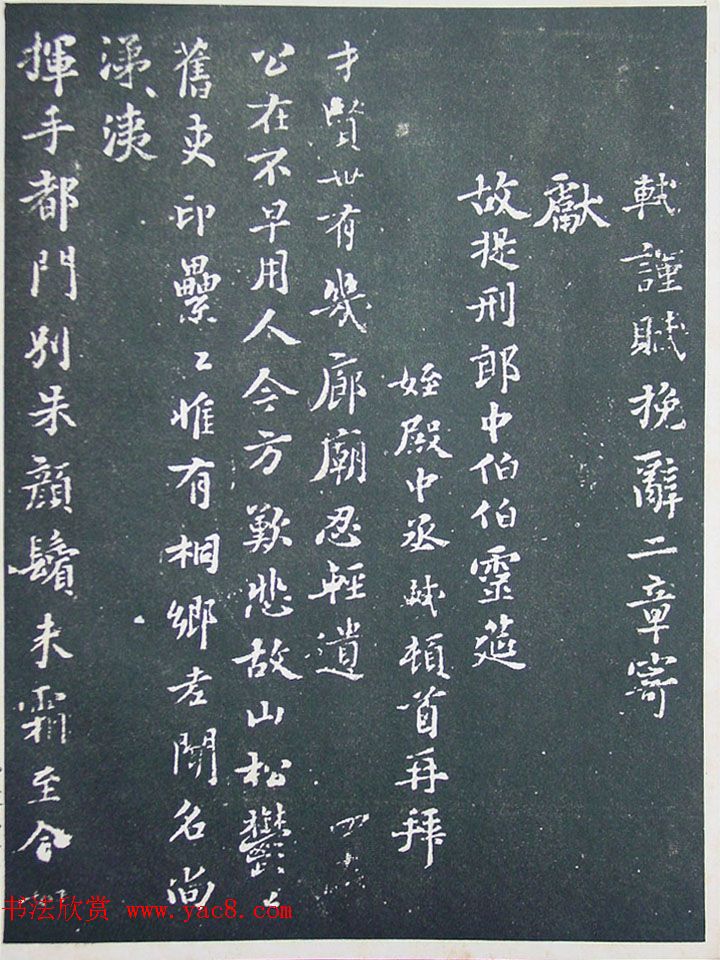 軾謹賦挽辭二章寄
獻
故提刑郎中伯伯靈筵
姪殿中丞軾頓首再拜
才賢世有幾廊廟忍輕遺
公在不早用人今方歎悲故山松鬱〻
舊吏印纍〻惟有桐鄉老聞名尚
涕洟
揮手都門別朱顏鬢未霜至今
书法欣赏 www.yac8.com